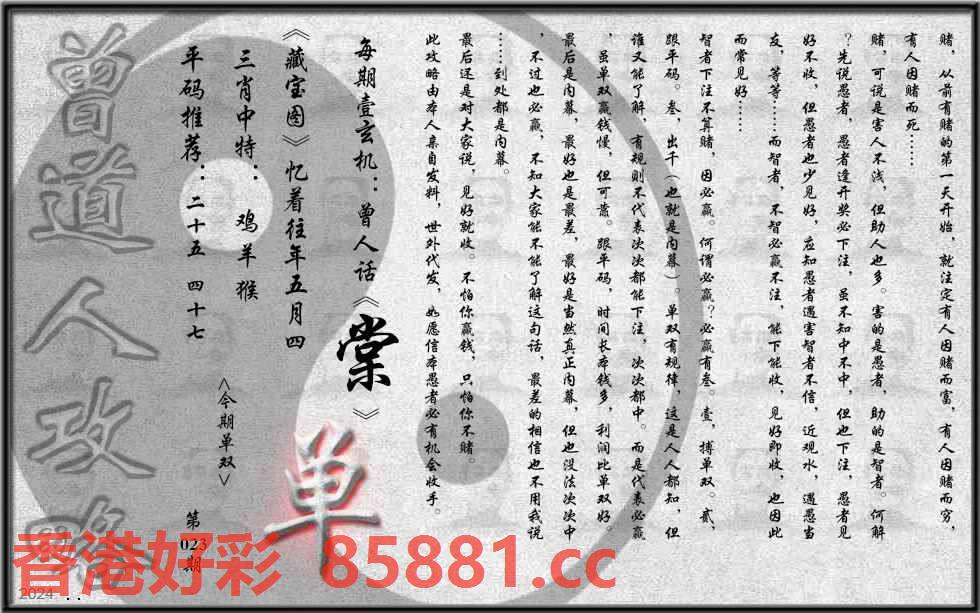 赌，从前有赌的第一天开始，就注定有人因赌而富，有人因赌而穷，
有人因赌而死……
赌，可说是害人不浅，但助人也多。害的是愚者，助的是智者。何解
？先说愚者，愚者逢开奖必下注，虽不知中不中，但也下注，愚者见
好不收，但愚者也少见好，应知愚者遇害智者不信，近观水，遇愚当
友，等等……而智者，不智必赢不注，能下能收，见好即收，也因此
而常见好……
智者下注不算赌，因必赢。何谓必赢？必赢有叁。壹，搏单双。贰，
跟平码。叁，出千（也就是内幕）。单双有规律，这是人人都知，但
谁又能了解，有规则不代表次次都能下注，次次都中。而是代表必赢
，虽单双赢钱慢，但可靠。跟平码，时间长本钱多，利润比单双好。
最后是内幕，最好也是最差，最好是当然真正内幕，但也没法次次中
，不过也必赢，不知大家能不能了解这句话，最差的相信也不用我说
……到处都是内幕。
最后还是对大家说，见好就收。不怕你赢钱，只怕你不赌。
此攻略由本人亲自发料，世外代发，如愿信本愚者必有机会收手。
每期壹玄机：曾人话《棠》
《藏宝图》忆着往年五月四
三肖中特：鸡羊猴
平码推荐：二十五 四十七
<今期单双>
单
第
023
期
曾道人攻略
香港好彩 85881.cc
2024